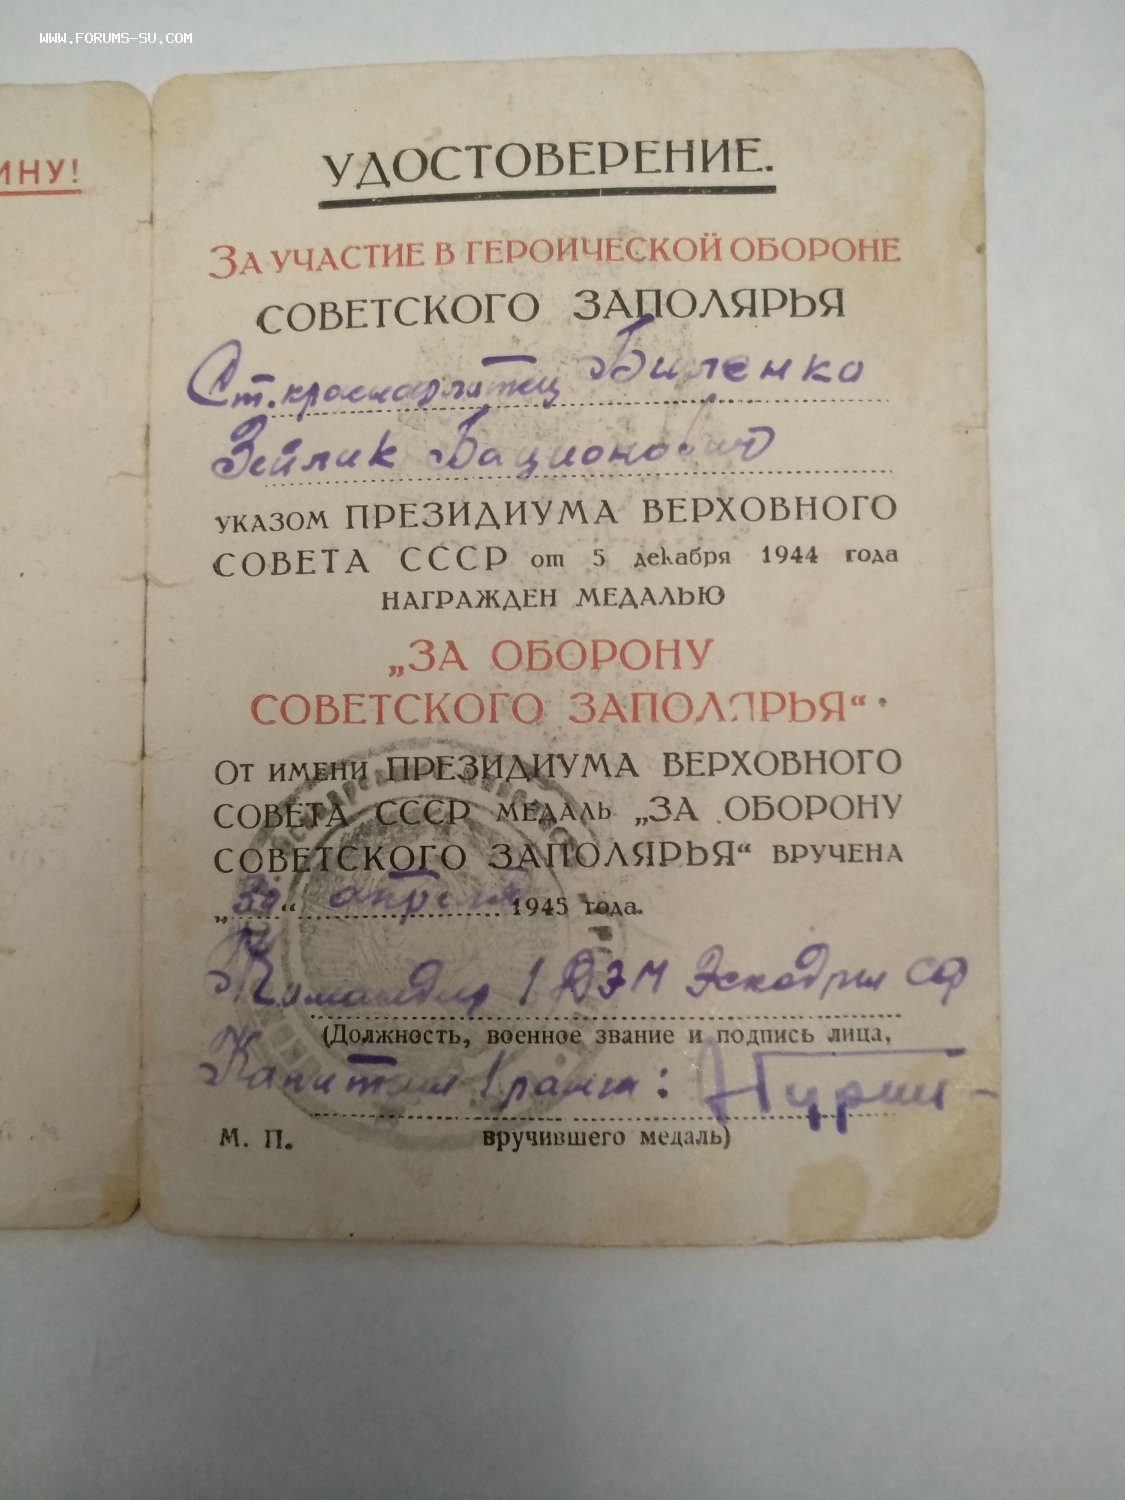 WWW.FORUMS-SU.COM
ИНУ!
УДОСТОВЕРЕНИЕ.
ЗА УЧАСТИЕ В ГЕРОИЧЕСКОЙ ОБОРОНЕ
СОВЕТСКОГО ЗАПОЛЯРЬЯ
Ст. краснофлотец Биленко
Зейлик Бационович
УКАЗОМ ПРЕЗИДИУМА ВЕРХОВНОГО
СОВЕТА СССР от 5 декабря 1944 года
НАГРАЖДЕН МЕДАЛЬЮ
„ЗА ОБОРОНУ
СОВЕТСКОГО ЗАПОЛЯРЬЯ“
ОТ ИМЕНИ ПРЕЗИДИУМА ВЕРХОВНОГО
СОВЕТА СССР МЕДАЛЬ „ЗА ОБОРОНУ
СОВЕТСКОГО ЗАПОЛЯРЬЯ“ ВРУЧЕНА
„30“ апреля 1945 года.
Командир 1 ДЭМ Эскадры СФ
(Должность, военное звание и подпись лица,
Капитан 1 ранга:
М. П. вручившего медаль)